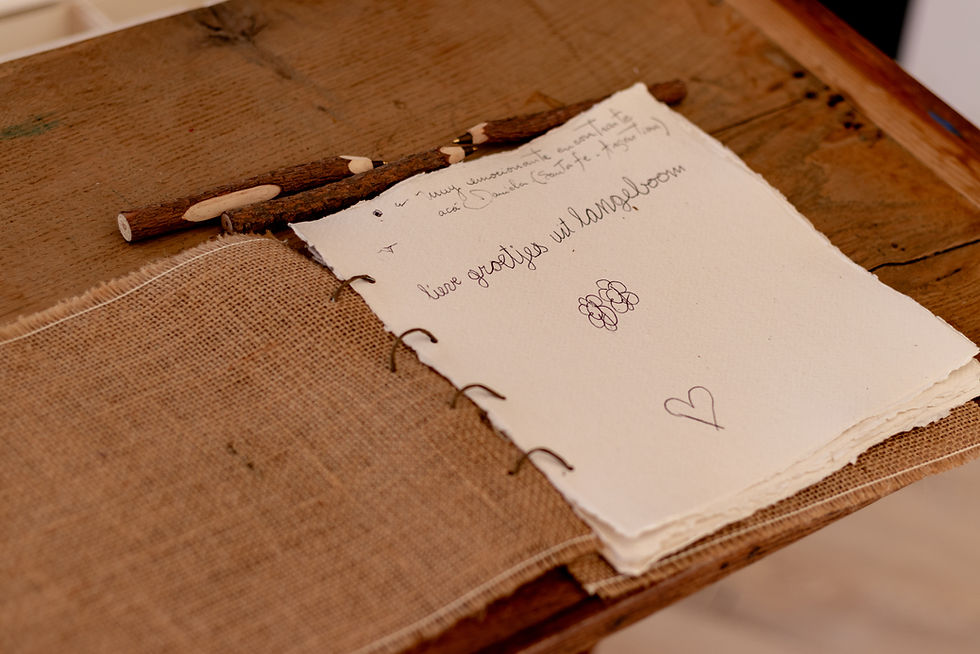 muy emocionante encontrarte
acá Daniela (Santa Fe - Argentina)
lieve groetjes uit langeboom